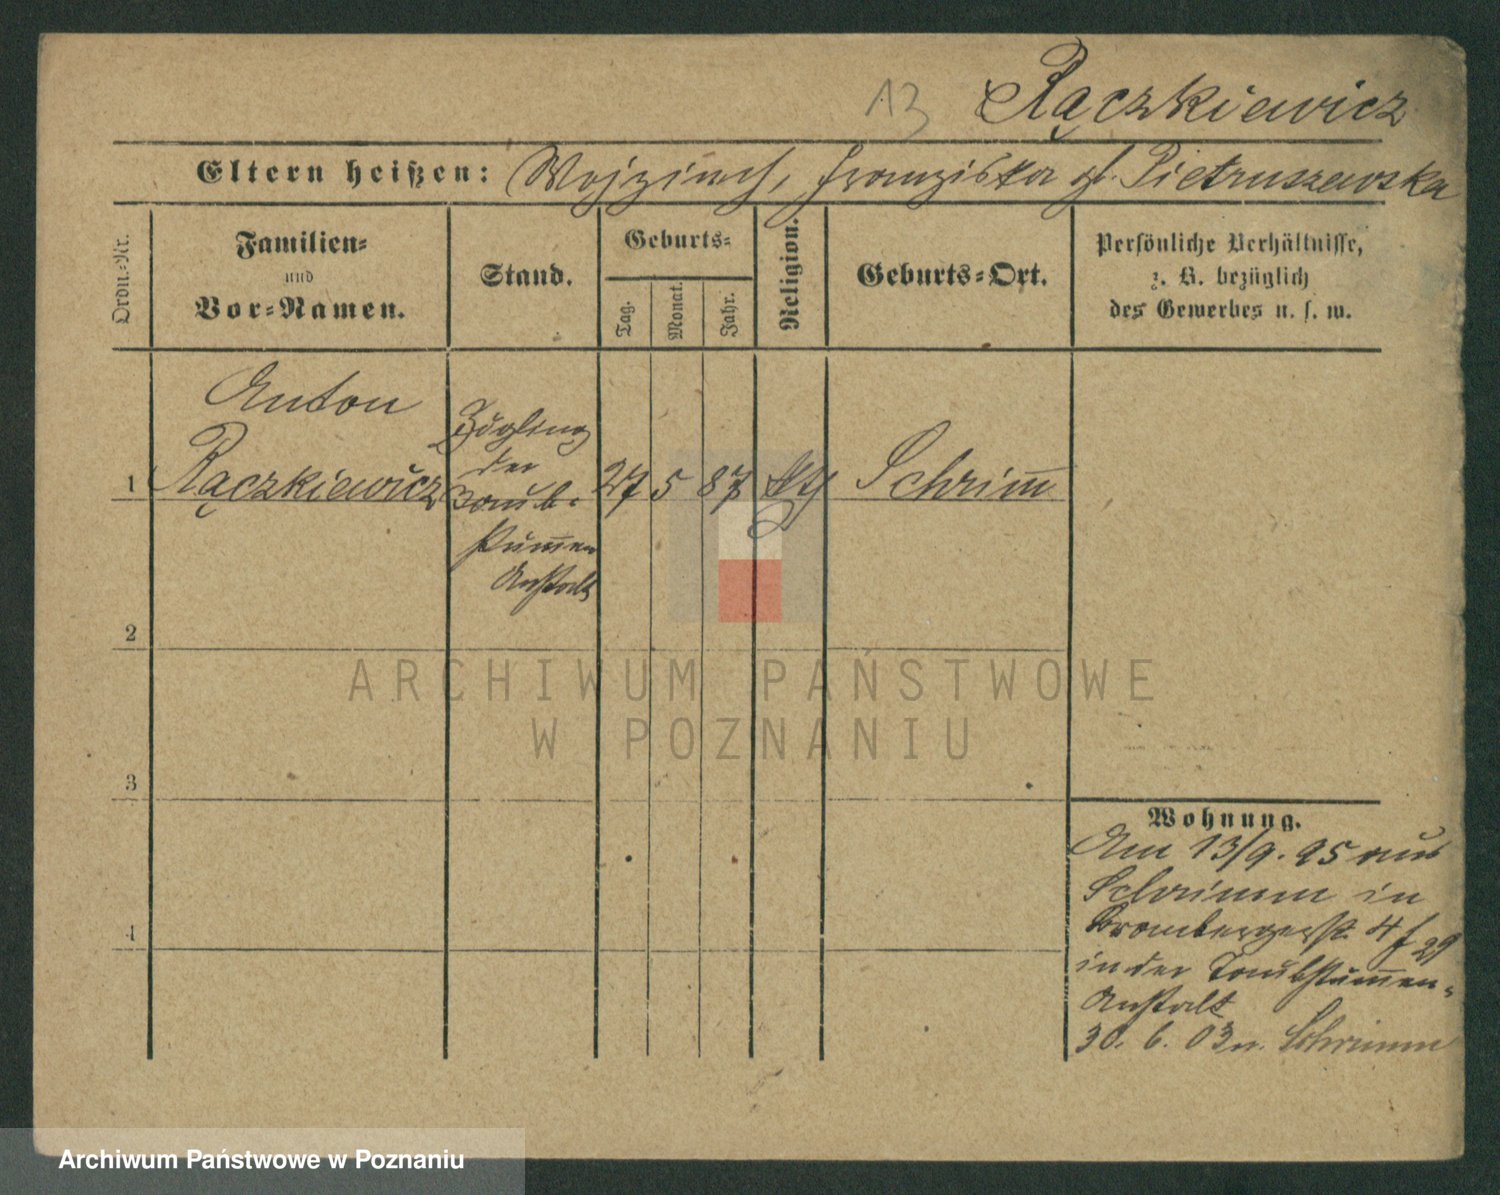 13 Rączkiewicz
Eltern heißen: Wojziech, Franziska gb. Pietruszewska
Ordn.-Nr.
Familien-
und
Vor-Namen.
Stand.
Geburts-
Tag.
Monat.
Jahr.
Religion.
Geburts-Ort.
Persönliche Verhältnisse,
z. B. bezüglich
des Gewerbes u. s. w.
Anton
1 Rączkiewicz
Zögling
der
Taub-
stum̅en
Anstalt
27 5 87 kth Schrim̅
2
3
4
Wohnung.
Am 13/9. 95 aus
Schrimm in
Brombergerst. 4
in der Taubstum̅en-
Anstalt
30. 6. 03 n. Schrimm
ARCHIWUM PAŃSTWOWE
W POZNANIU
Archiwum Państwowe w Poznaniu